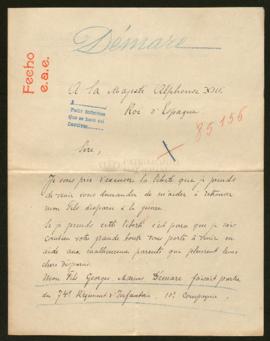 Démare
Fecho
e.a.e.
A la Majesté Alphonse XIII
Roi d'Espagne
85156
Sire,
Je vous prie d'excuser la liberté que je prends
de venir vous demander de m'aider à retrouver
mon fils disparu à la guerre.
Si je prends cette liberté c'est parce que je sais
combien votre grande bonté vous porte à venir en
aide aux malheureux parents qui pleurent leurs
chers disparus.
Mon fils Georges, Démare faisait partie
du 74e Régiment d'Infanterie, 11e Compagnie,